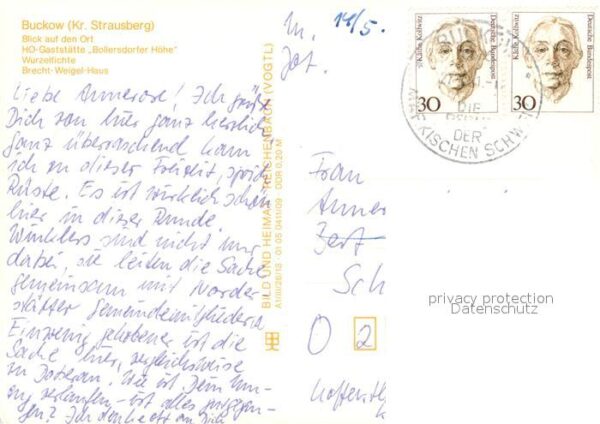 Buckow (Kr. Strausberg)
Blick auf den Ort
HO-Gaststätte „Bollersdorfer Höhe"
Wurzelfichte
Brecht-Weigel-Haus
Liebe Annerose! Ich grüße
Dich von hier ganz herzlich
ganz überraschend kam
ich zu dieser Freizeit, sprich
Rüste. Es ist wirklich schön
hier in dieser Runde.
Winklers sind nicht nur
dabei, sie leiten die Sache
gemeinsam mit Norder
stätter Gemeindemitgliedern
Einzwenig gehobener ist die
Sache hier, vergleichsweise
zu Doberan. Wie ist Dein Um-
zug verlaufen – ist alles gutgegan-
gen? Ich denke oft an Dich
BILD UND HEIMAT REICHENBACH (VOGTL)
A1/III/26/13 01 05 0411/09 DDR 0,20 M
14/5.
Deutsche Bundespost
Käthe Kollwitz
30
Deutsche Bundespost
Käthe Kollwitz
30
BUCKOW
DIE
DER
MÄRKISCHEN SCHWEIZ
Frau
Anner
Sch
O 2
privacy protection
Datenschutz